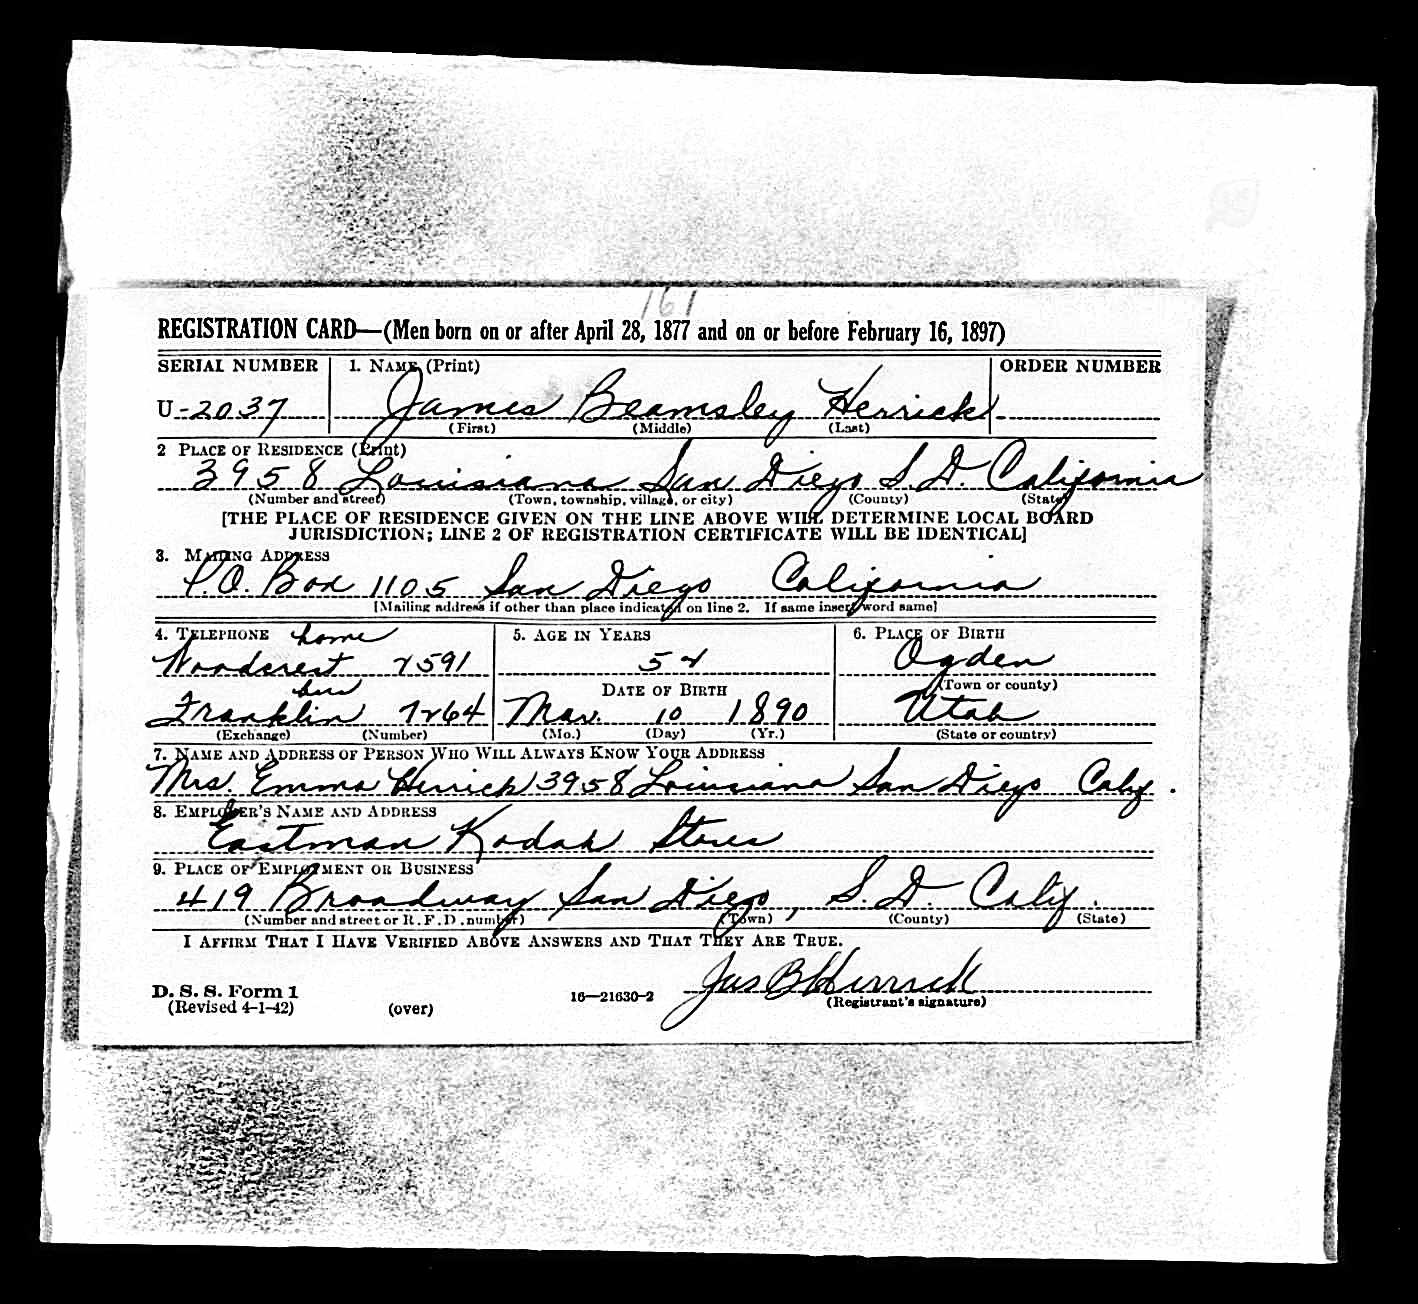 161
REGISTRATION CARD—(Men born on or after April 28, 1877 and on or before February 16, 1897)
SERIAL NUMBER 1. NAME (Print) ORDER NUMBER
U-2037 James Beamsley Herrick
(First) (Middle) (Last)
2 PLACE OF RESIDENCE (Print)
3958 Louisiana San Diego S.D. California
(Number and street) (Town, township, village, or city) (County) (State)
[THE PLACE OF RESIDENCE GIVEN ON THE LINE ABOVE WILL DETERMINE LOCAL BOARD
JURISDICTION; LINE 2 OF REGISTRATION CERTIFICATE WILL BE IDENTICAL]
3. MAILING ADDRESS
P.O. Box 1105 San Diego California
[Mailing address if other than place indicated on line 2. If same insert word same]
4. TELEPHONE home 5. AGE IN YEARS 6. PLACE OF BIRTH
Woodcrest 2591 52 Ogden
bus DATE OF BIRTH (Town or county)
Franklin 7264 Mar. 10 1890 Utah
(Exchange) (Number) (Mo.) (Day) (Yr.) (State or country)
7. NAME AND ADDRESS OF PERSON WHO WILL ALWAYS KNOW YOUR ADDRESS
Mrs. Emma Herrick 3958 Louisiana San Diego Calif.
8. EMPLOYER'S NAME AND ADDRESS
Eastman Kodak Stores
9. PLACE OF EMPLOYMENT OR BUSINESS
419 Broadway San Diego, S.D. Calif.
(Number and street or R. F. D. number) (Town) (County) (State)
I AFFIRM THAT I HAVE VERIFIED ABOVE ANSWERS AND THAT THEY ARE TRUE.
Jas B Herrick
D. S. S. Form 1 16—21630-2 (Registrant's signature)
(Revised 4-1-42) (over)